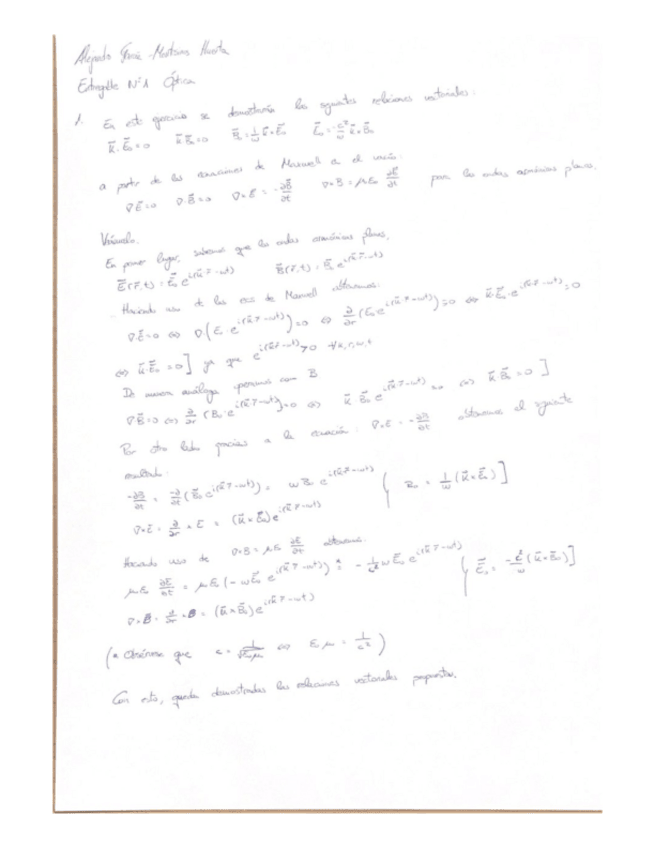 Entregable Nº1 Óptica
1. En este ejercicio se demostrarán las siguientes relaciones vectoriales:
k⃗·E⃗₀=0   k⃗·B⃗₀=0   B⃗₀=1/ω k⃗×E⃗₀   E⃗₀=-c²/ω k⃗×B⃗₀
a partir de las ecuaciones de Maxwell en el vacío:
∇E⃗=0   ∇·B⃗=0   ∇×E⃗=-∂B⃗/∂t   ∇×B=με₀ ∂E⃗/∂t   para las ondas armónicas planas.
Veámoslo.
En primer lugar, sabemos que las ondas armónicas planas,
E⃗(r⃗,t)=E⃗₀e^{i(k⃗·r⃗-ωt)}   B⃗(r⃗,t)=B⃗₀e^{i(k⃗·r⃗-ωt)}
Haciendo uso de las ecs de Maxwell obtenemos:
∇·E⃗=0 ⇔ ∇·(E₀·e^{i(k⃗·r⃗-ωt)})=0 ⇔ ∂/∂r(E₀e^{i(k⃗·r⃗-ωt)})=0 ⇔ k⃗·E⃗₀·e^{i(k⃗·r⃗-ωt)}=0
⇔ k⃗·E⃗₀=0] ya que e^{i(k⃗·r⃗-ωt)}>0 ∀k,r,ω,t
De manera análoga operamos con B
∇B⃗=0 ⇔ ∂/∂r(B₀·e^{i(k⃗·r⃗-ωt)})=0 ⇔ k⃗·B⃗₀e^{i(k⃗·r⃗-ωt)}=0 ⇔ k⃗·B⃗₀=0]
Por otro lado gracias a la ecuación: ∇×E=-∂B/∂t obtenemos el siguiente
resultado:
-∂B/∂t = -∂/∂t(B⃗₀e^{i(k⃗·r⃗-ωt)}) = ωB₀e^{i(k⃗·r⃗-ωt)}   { B₀=1/ω(k⃗×E⃗₀)]
∇×E=∂/∂r×E=(k⃗×E⃗₀)e^{i(k⃗·r⃗-ωt)}
Haciendo uso de ∇×B=με ∂E/∂t obtenemos:
με ∂E/∂t=με(-ωE⃗₀e^{i(k⃗·r⃗-ωt)}) *= -1/c² ωE⃗₀e^{i(k⃗·r⃗-ωt)}   { E⃗₀=-c²/ω(k⃗×B⃗₀)]
∇×B⃗=∂/∂r×B=(k⃗×B⃗₀)e^{i(k⃗·r⃗-ωt)}
(* Obsérvese que c=1/√ε₀μ ⇔ ε₀μ=1/c²)
Con esto, quedan demostradas las relaciones vectoriales propuestas.